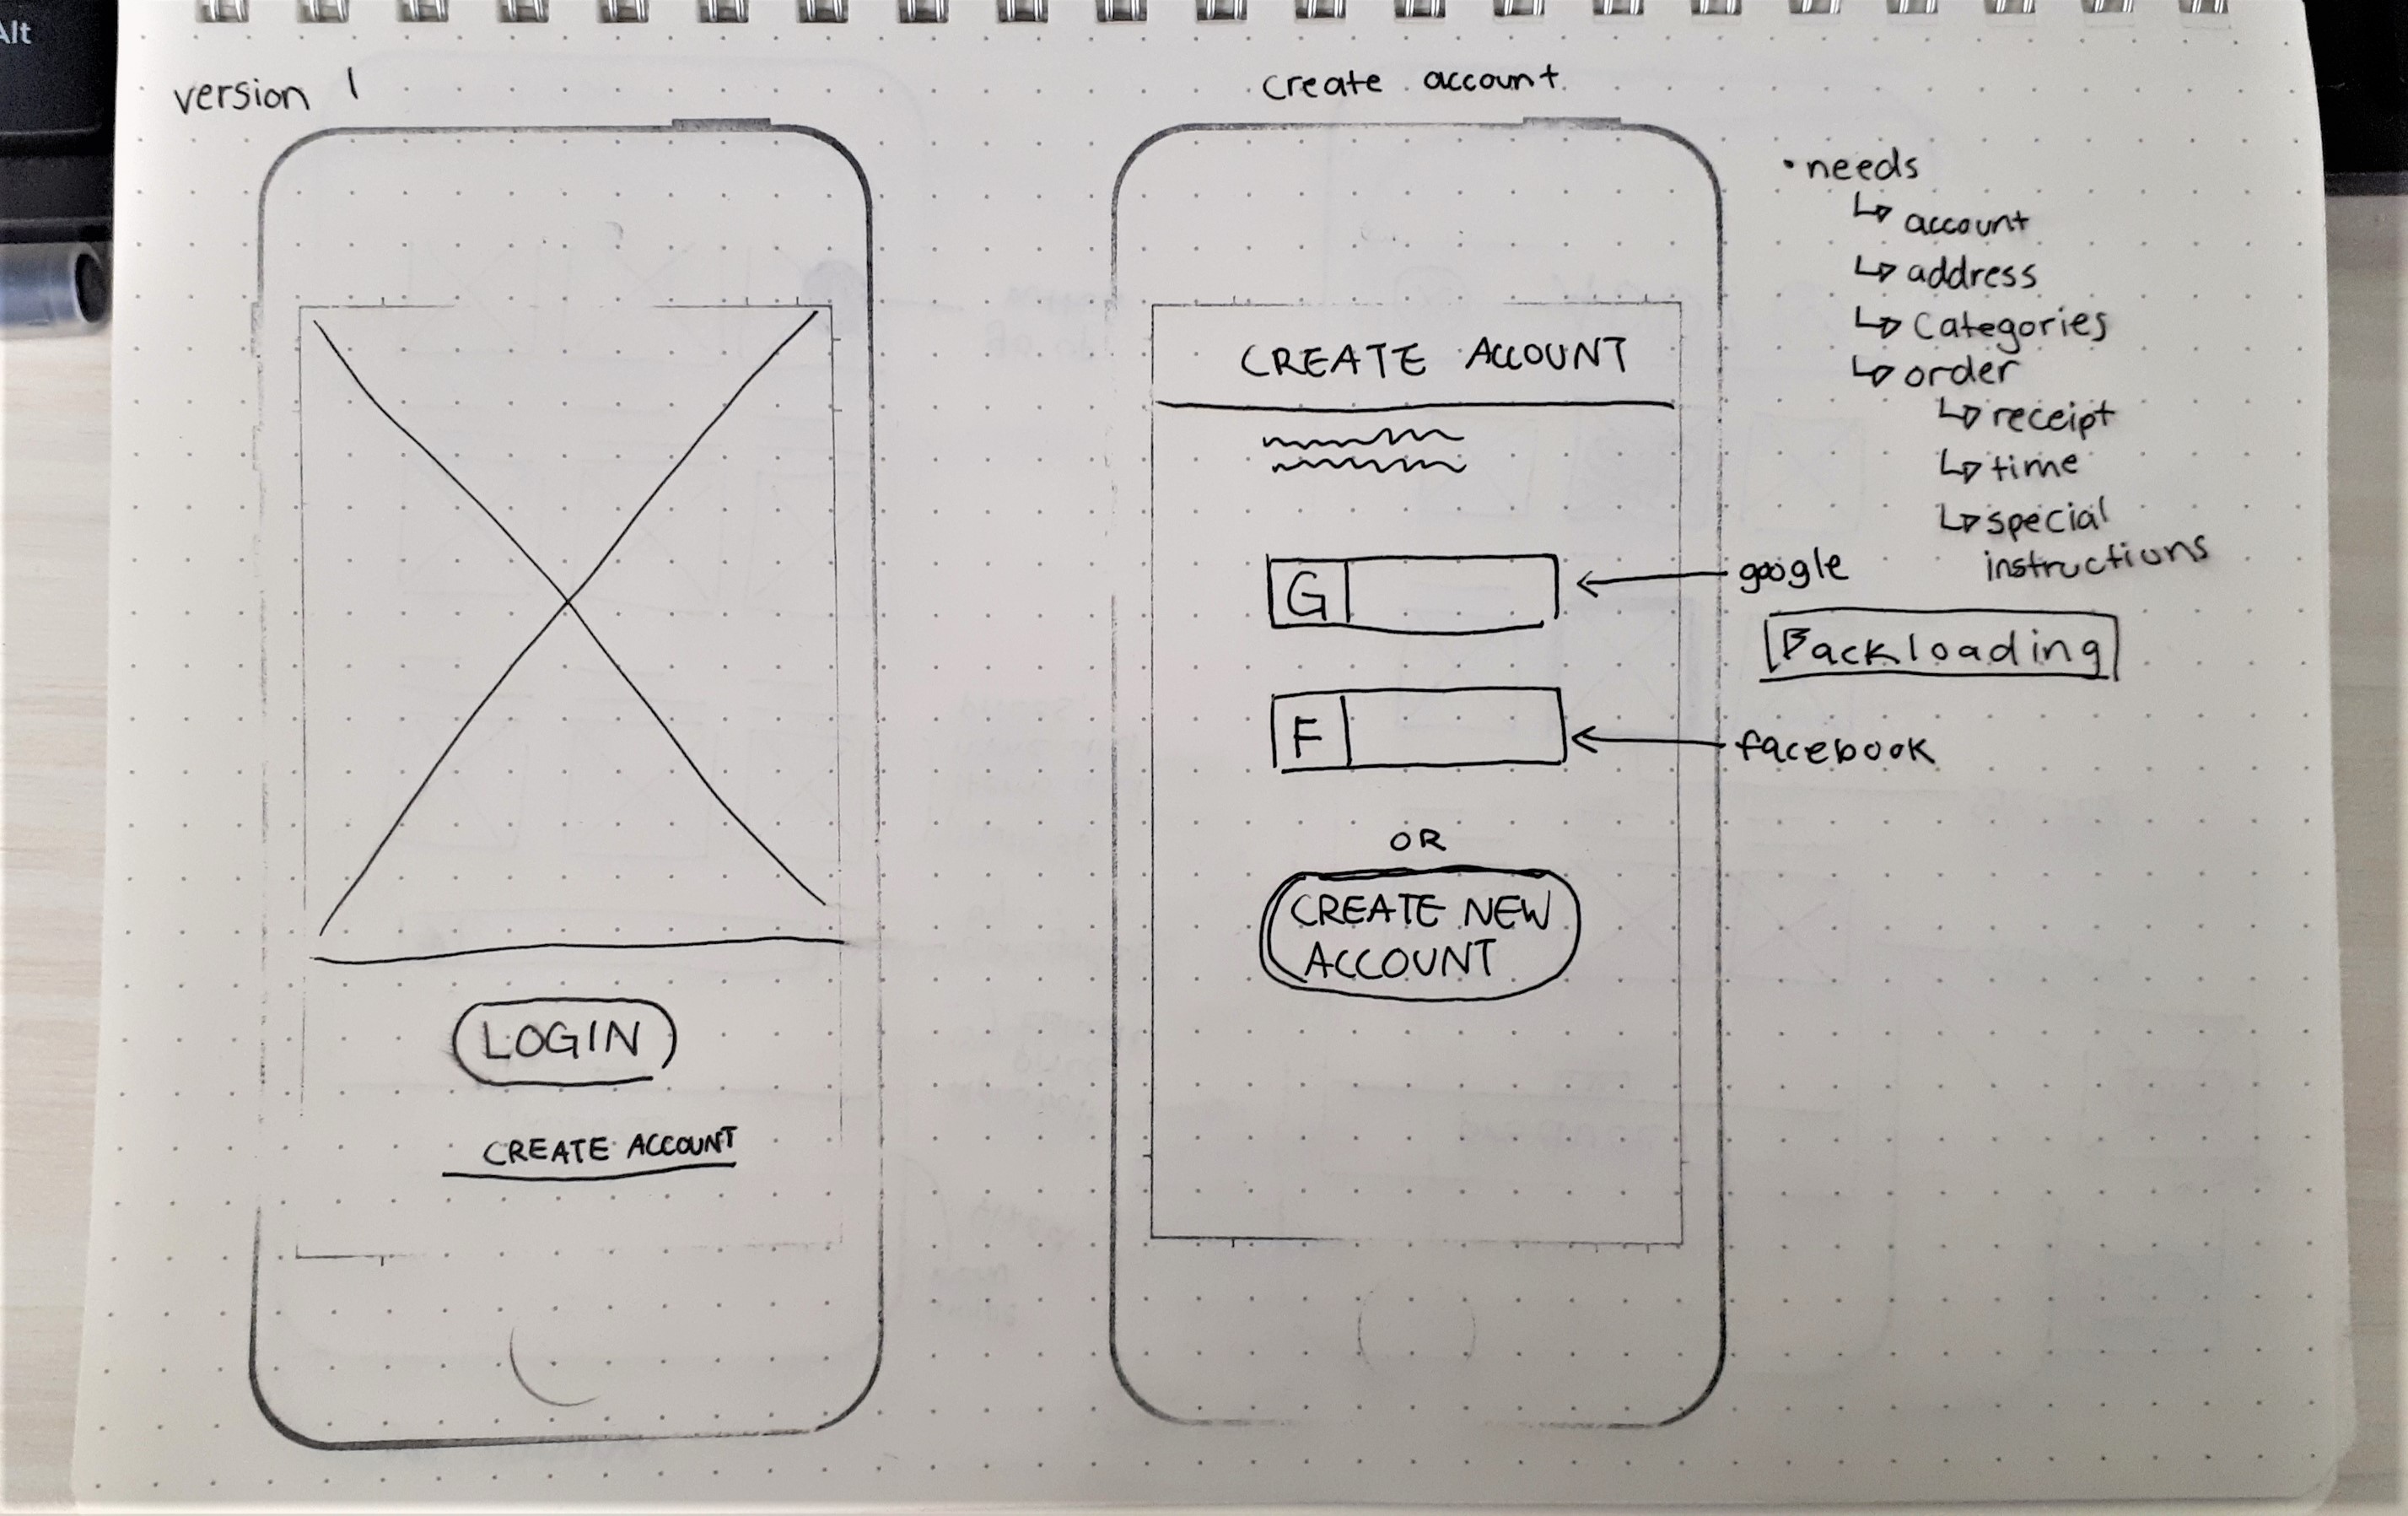 Alt
version 1
LOGIN
CREATE ACCOUNT
create account
CREATE ACCOUNT
G
F
OR
CREATE NEW
ACCOUNT
• needs
↳ account
↳ address
↳ Categories
↳ order
↳ receipt
↳ time
↳ special
instructions
google
Backloading
facebook